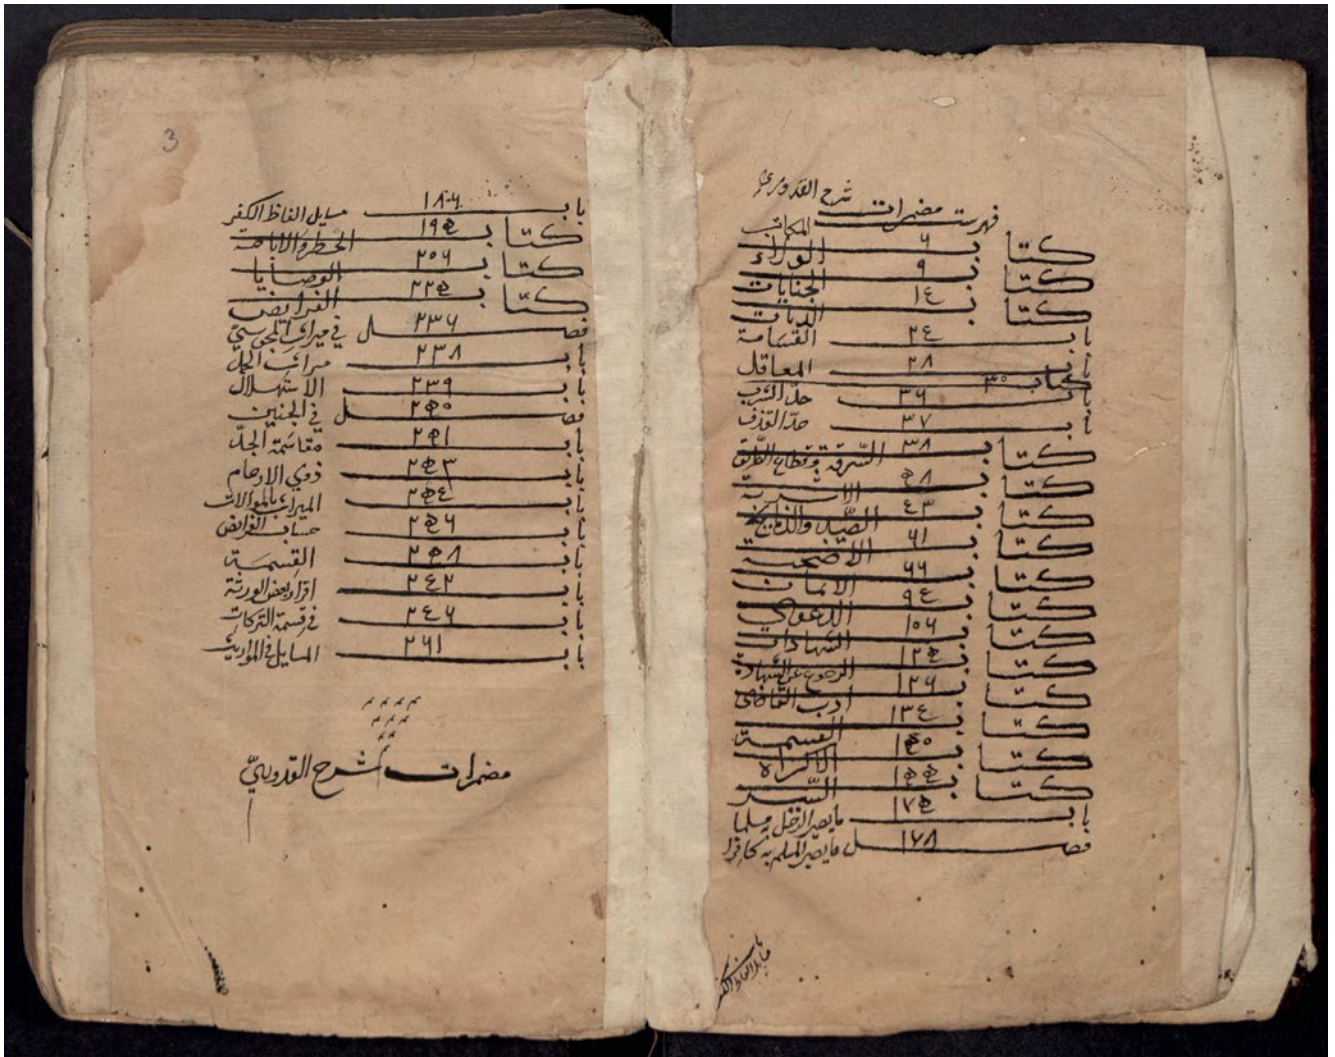 فهرست مضمرات شرح القدوري
كتاب ٦ المكاتب
كتاب ٩ الولاء
كتاب ١٤ الجنايات
الديات
باب ٢٤ القسامة
باب ٢٨ المعاقل
كتاب ٣٠
باب ٣٦ حد الشرب
باب ٣٧ حد القذف
كتاب ٣٨ السرقة وقطاع الطريق
كتاب الاشربة
كتاب ٤٣ الصيد والذبايح
كتاب ٦١ الاضحية
كتاب ٦٦ الايمان
كتاب ٩٤ الدعوى
كتاب ١٠٦ الشهادات
كتاب ١٢٥ الرجوع عن الشهادة
كتاب ١٢٦ ادب القاضى
كتاب ١٣٤ القسمة
كتاب ١٥٠ الاكراه
كتاب ١٥٥ السير
باب ١٧٥ ما يصير الرجل مسلما
فصل ١٧٨ ما يصير المسلم به كافرا
باب
مسايل الفاظ الكفر
3
باب ١٨٦ مسايل الفاظ الكفر
كتاب ١٩٥ الحظر والاباحة
كتاب ٢٠٦ الوصايا
كتاب ٢٢٥ الفرايض
فصل ٢٣٦ في ميراث المجوسي
باب ٢٣٨ ميراث الحمل
باب ٢٣٩ الاستهلال
فصل ٢٥٠ في الجنين
باب ٢٥١ مقاسمة الجد
باب ٢٥٣ ذوي الارحام
باب ٢٥٤ الميراث بالموالات
باب ٢٥٦ حساب الفرايض
باب ٢٥٨ القسمة
باب ٢٤٢ اقرار بعض الورثة
باب ٢٤٦ في قسمة التركات
باب ٢٦١ المسايل في المواريث
مضمرات شرح القدوري